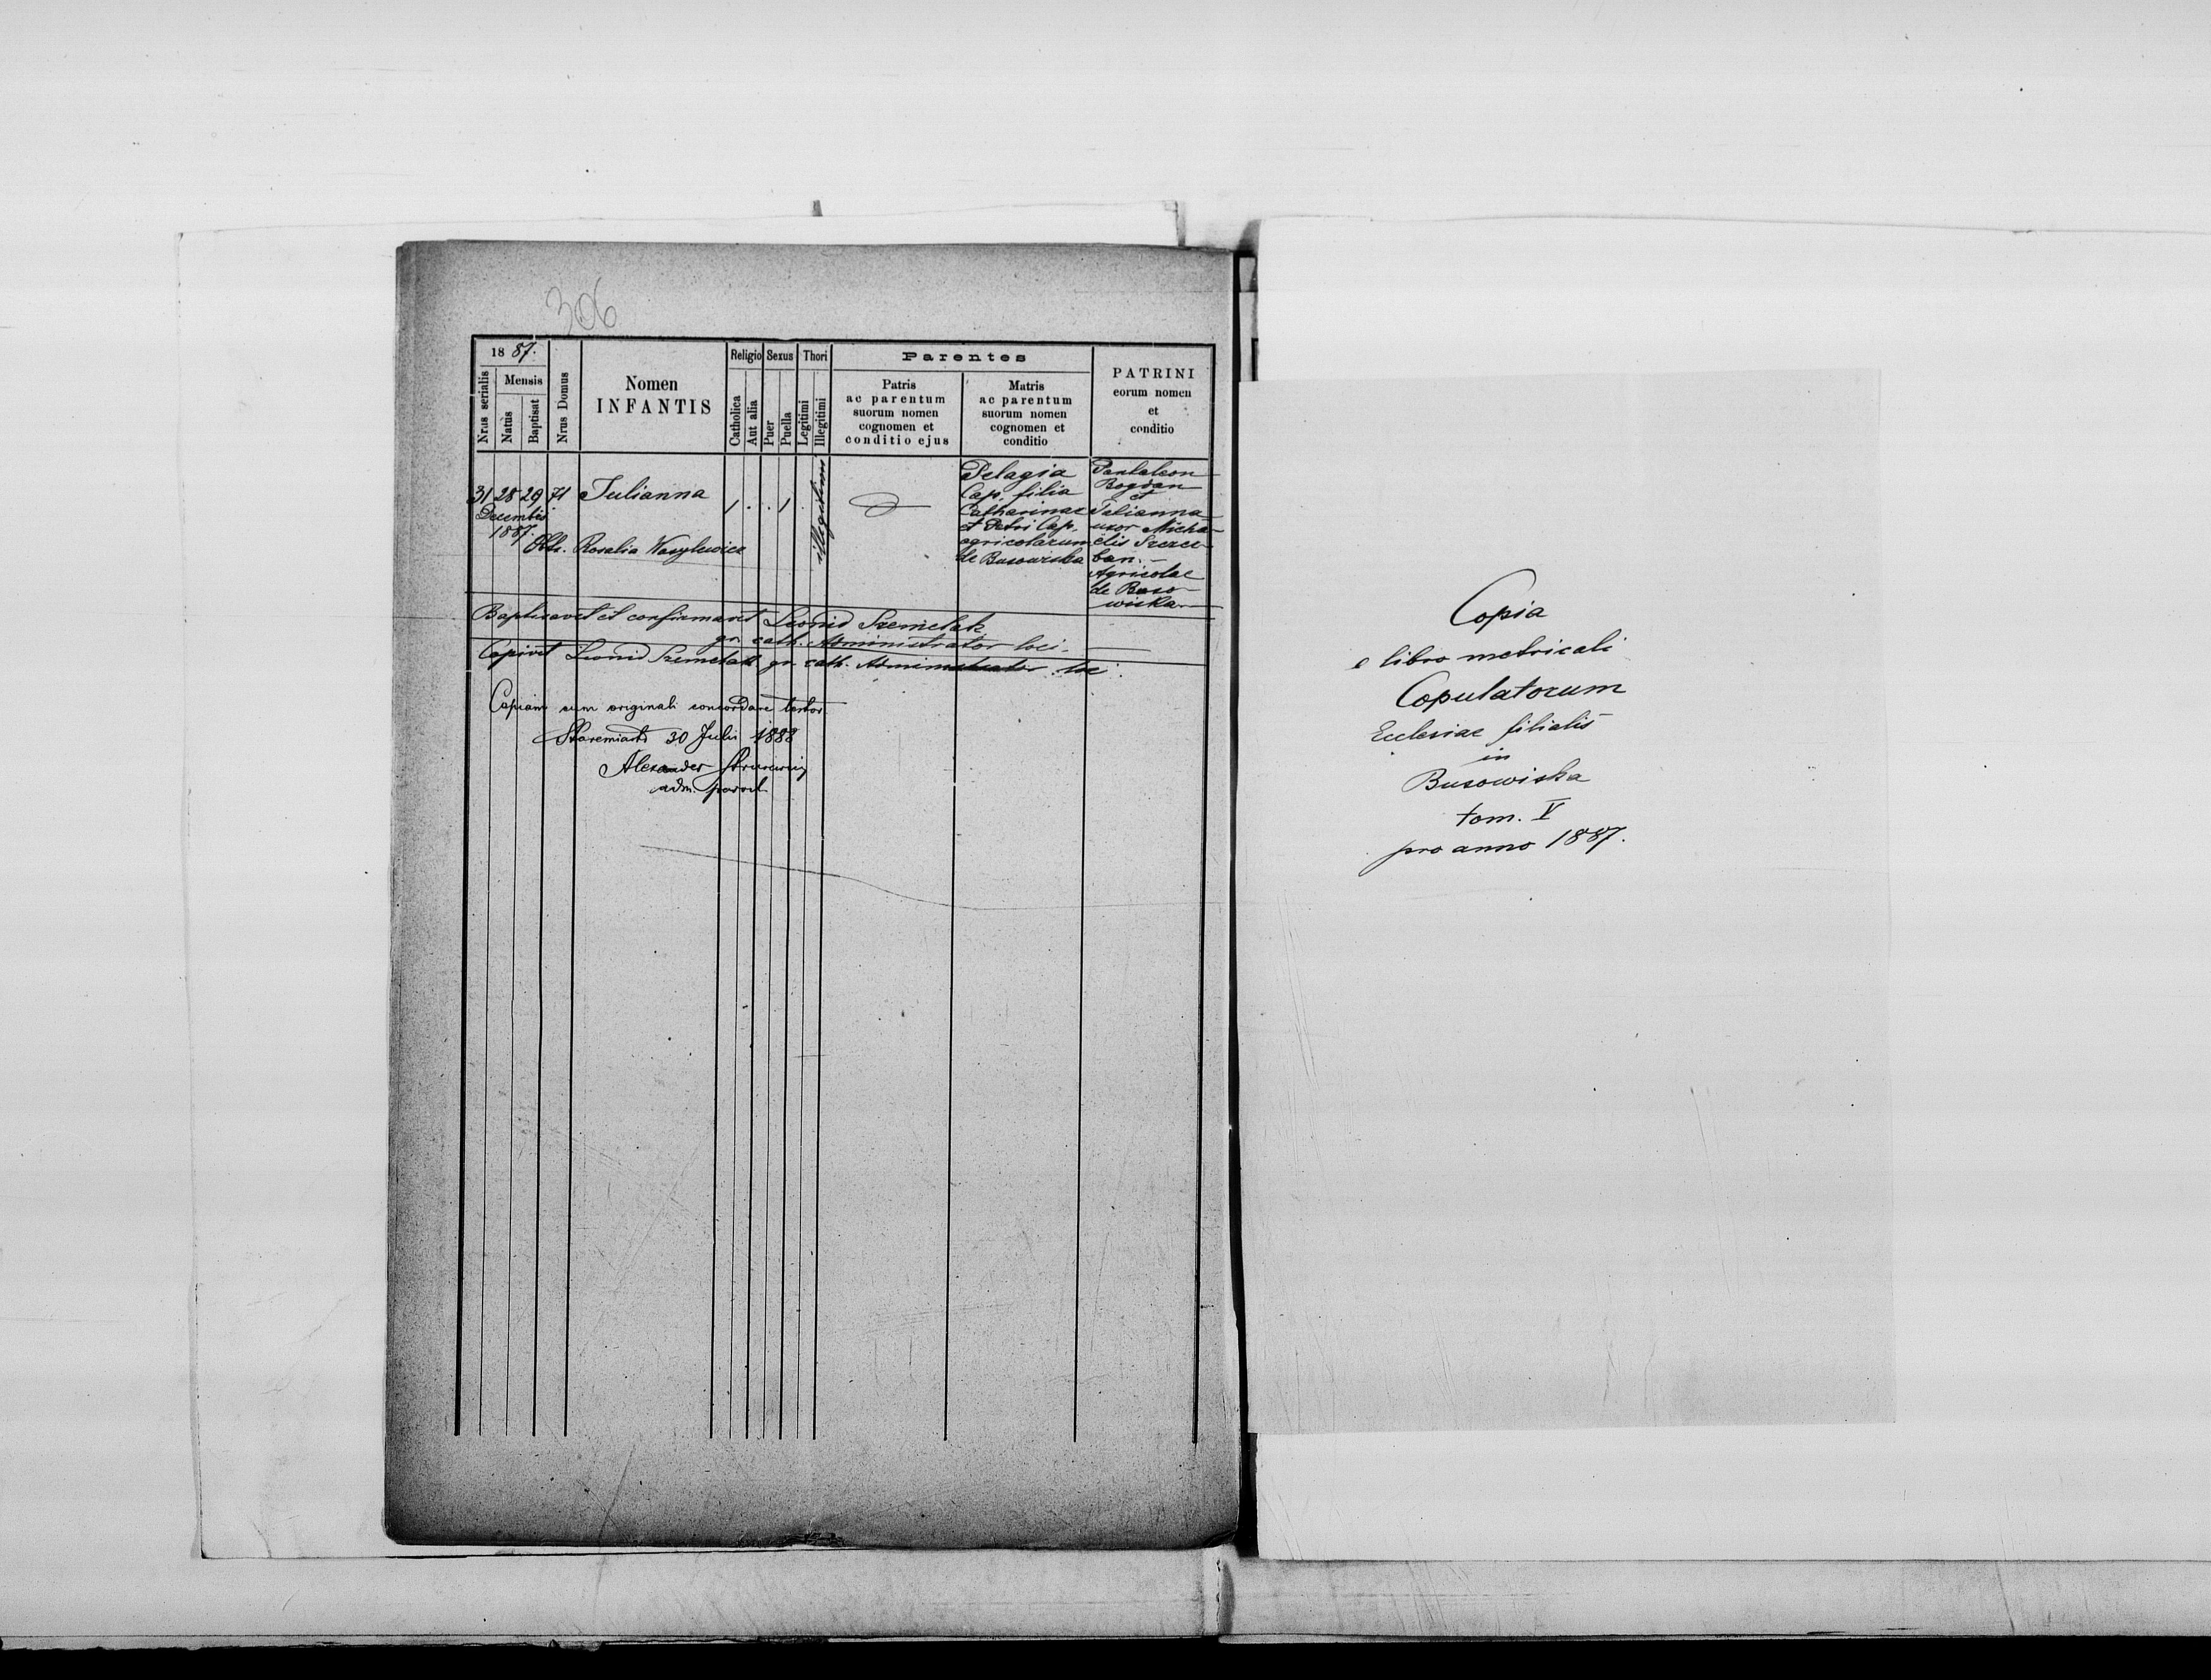 306
18 87.
Nrus serialis
Mensis
Natus
Baptisat
Nrus Domus
Nomen
INFANTIS
Religio
Catholica
Aut alia
Sexus
Puer
Puella
Thori
Legitimi
Illegitimi
Parentes
Patris
ac parentum
suorum nomen
cognomen et
conditio ejus
Matris
ac parentum
suorum nomen
cognomen et
conditio
PATRINI
eorum nomen
et
conditio
31 28 29 71 Julianna 1 . . 1 .
Decembris
1887.
Obs. Rosalia Wasylewicz
illegitimi
Pelagia
Cap. filia
Catharinae
et Petri Cap.
agricolarum
de Busowiska
Pantaleon
Bogdan
et
Julianna
uxor Micha-
elis Szczer-
ban.
Agricolae
de Buso-
wiska.
Baptisavit et confirmavit Leonid Szemelak
gr. cath. Administrator loci.
Copivit Leonid Szemelak gr. cath. Administrator loc
Copiam cum originali concordare testor
Staremiasto 30 Julii 1888
Alexander
adm. paroch
Copia
e libro metricali
Copulatorum
Ecclesiae filialis
in
Busowiska
tom. V
pro anno 1887.